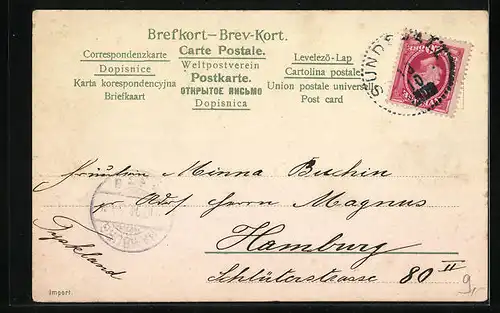 Brefkort-Brev-Kort.
Correspondenzkarte Carte Postale. Levelező-Lap
Dopisnice Weltpostverein Cartolina postale
Karta korespondencyjna Postkarte. Union postale universelle
Briefkaart ОТКРЫТОЕ ПИСЬМО Post card
Dopisnica
SUNDSVALL
Fräulein Minna Buchin
pr Adr. Herrn Magnus
Hamburg
Tyskland
Schlüterstrasse 80 II
9,
Import.